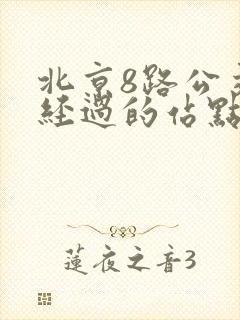 北京8路公
經過的佔點
蓮夜之音3